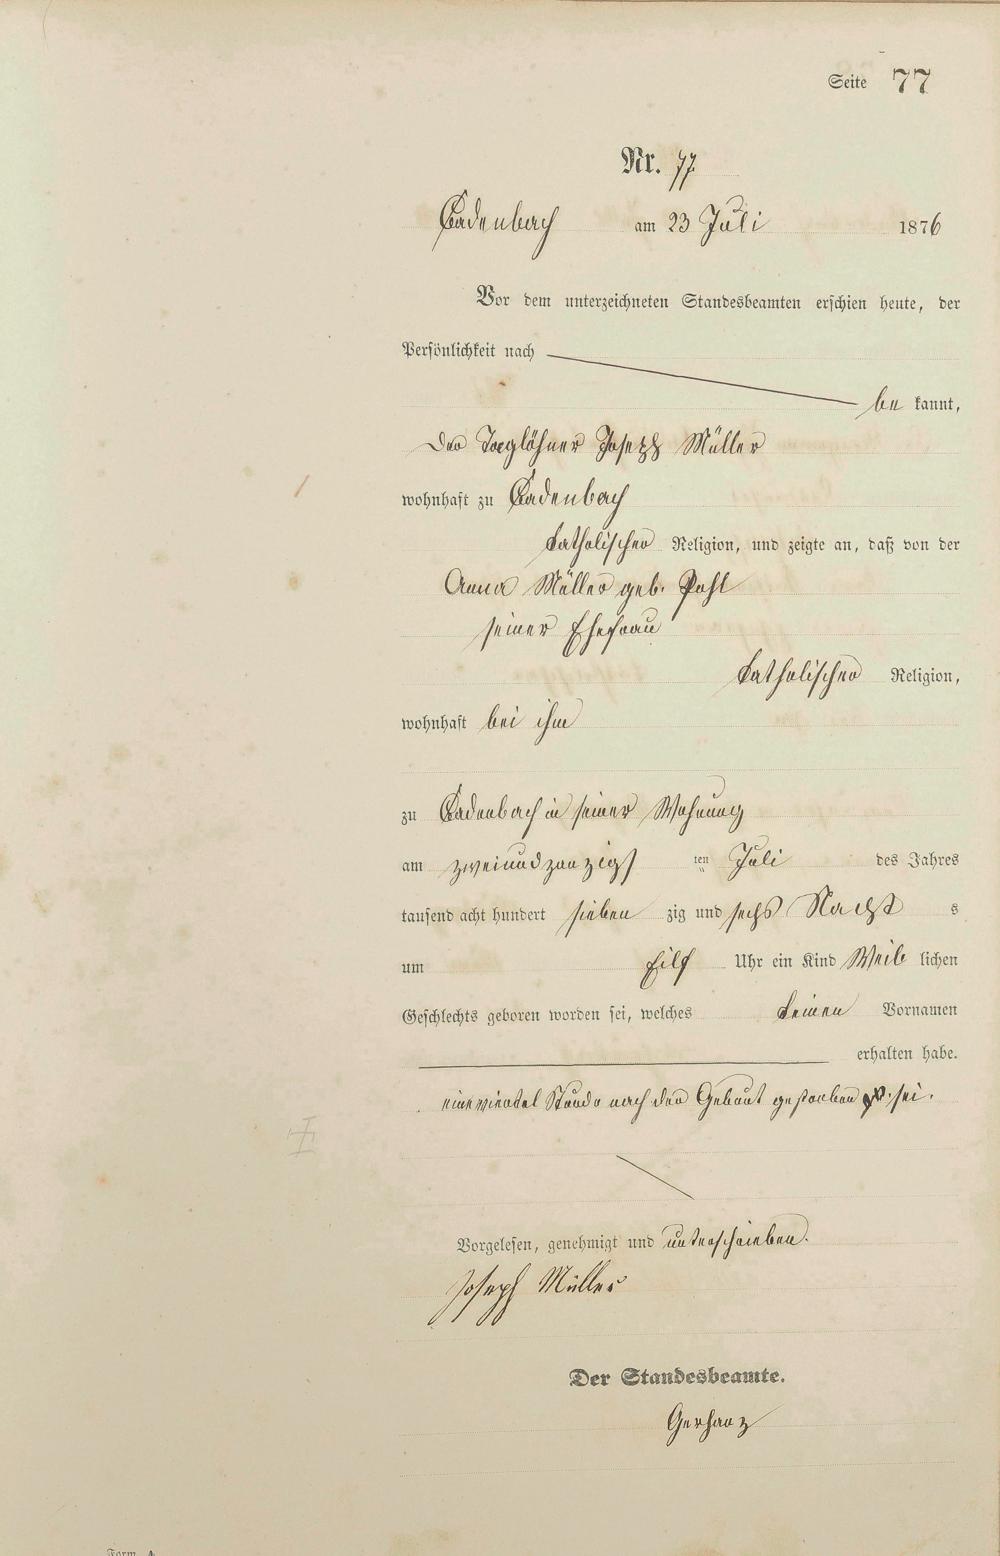 Seite 77
Nr. 77
Cadenbach am 23 Juli 1876
Vor dem unterzeichneten Standesbeamten erschien heute, der
Persönlichkeit nach
be kannt,
der Taglöhner Joseph Müller
wohnhaft zu Cadenbach
katholischer Religion, und zeigte an, daß von der
Anna Müller geb. Pohl
seiner Ehefrau
katholischer Religion,
wohnhaft bei ihm
zu Cadenbach in seiner Wohnung
am zweiundzanzigs ten Juli des Jahres
tausend acht hundert sieben zig und sechs Nachts
um Eilf Uhr ein Kind Weib lichen
Geschlechts geboren worden sei, welches keinen Vornamen
erhalten habe.
eine viertel Stunde nach der Geburt gestorben sei.
Vorgelesen, genehmigt und unterschrieben.
Joseph Müller
Der Standesbeamte.
Gerharz
Form. A